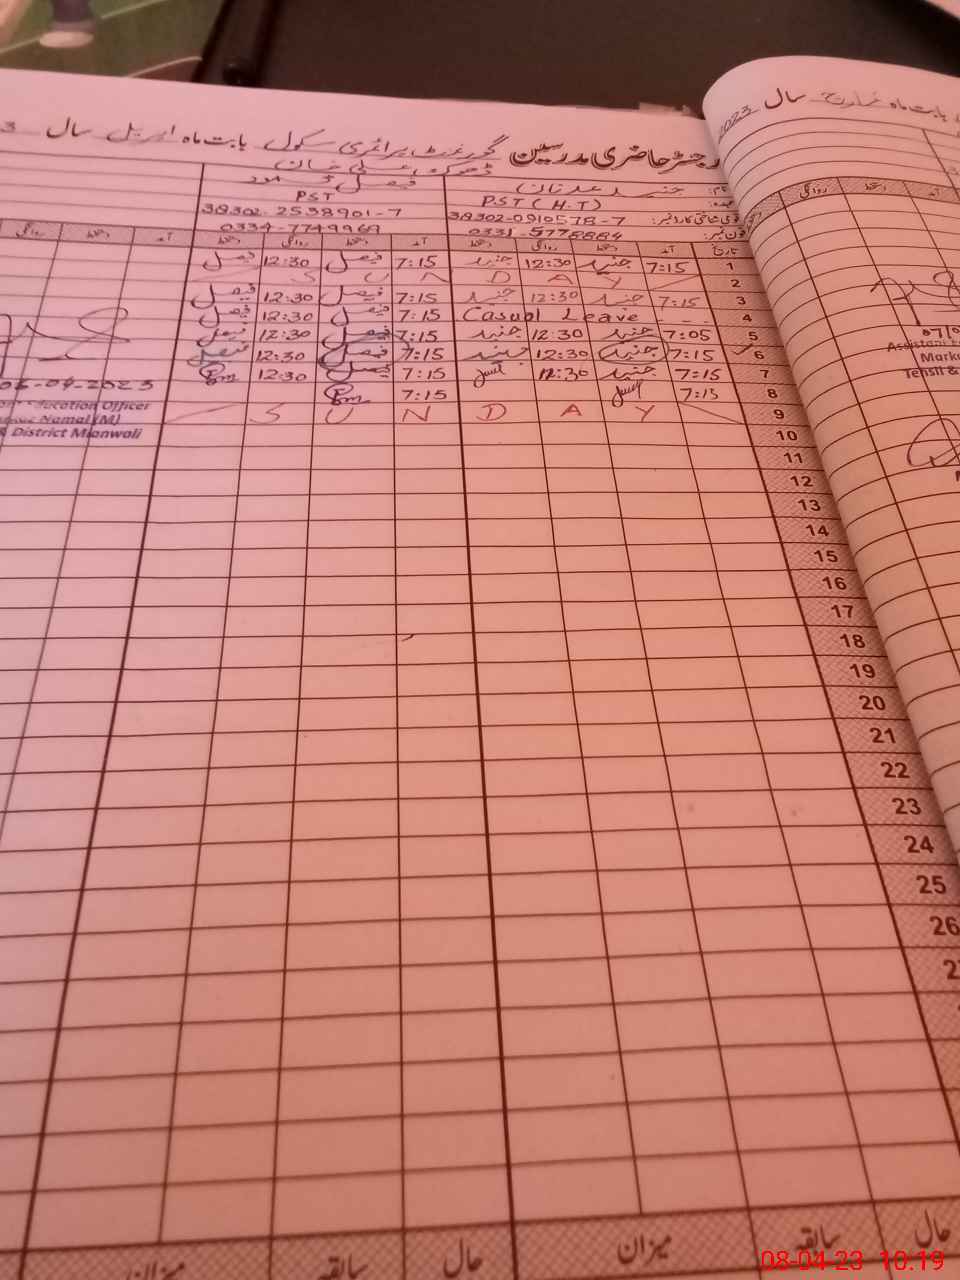 رجسٹر حاضری مدرسین گورنمنٹ پرائمری سکول بابت ماہ اپریل سال
ڈھوک علی خان
نام: جنید عدنان فیصل محمود
عہدہ: PST (H.T) PST
قومی شناختی کارڈ نمبر: 38302-0910578-7 38302-2538901-7
فون نمبر: 0331-5778884 0334-7749969
تاریخ آمد دستخط روانگی دستخط آمد دستخط روانگی دستخط آمد دستخط روانگی
1 7:15 جنید 12:30 جنید 7:15 فیصل 12:30 فیصل
2 S U N D A Y
3 7:15 جنید 12:30 جنید 7:15 فیصل 12:30 فیصل
4 Casual Leave 7:15 فیصل 12:30 فیصل
5 7:05 جنید 12:30 جنید 7:15 فیصل 12:30 فیصل
6 7:15 جنید 12:30 جنید 7:15 فیصل 12:30 فیصل
7 7:15 جنید 12:30 7:15 فیصل 12:30
8 7:15 7:15
9 S U N D A Y
10
11
12
13
14
15
16
17
18
19
20
21
22
23
24
25
26
حال سابقہ میزان حال سابقہ میزان
06-04-2023
Education Officer
Namal (M)
& District Mianwali
بابت ماہ مارچ سال 2023
آمد دستخط روانگی
Assistant
Marka
Tehsil &
08-04-23 10:19